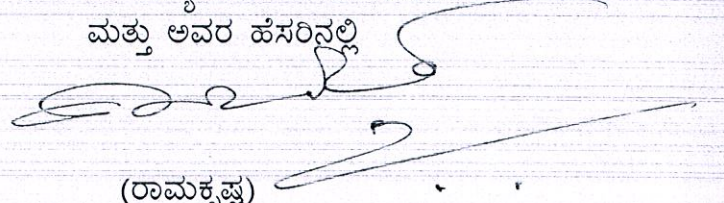 ಮತ್ತು ಅವರ ಹೆಸರಿನಲ್ಲಿ
(ರಾಮಕೃಷ್ಣ)